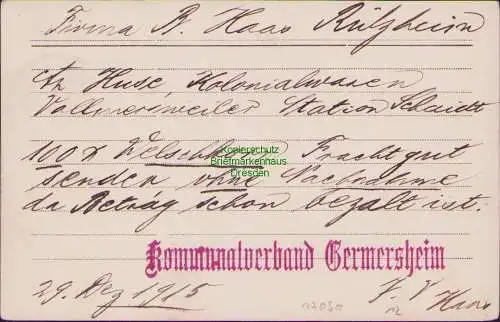 Firma B. Haas Rülzheim
Fr. Huse, Kolonialwaren
Vollmersweiler Station Schaidt
100 ℔ Welschkorn Frachtgut
senden ohne Nachnahme
da Betrag schon bezalt ist.
Kopierschutz
Briefmarkenhaus
Dresden
Kommunalverband Germersheim
29. Dez 1915
F. V
Haas